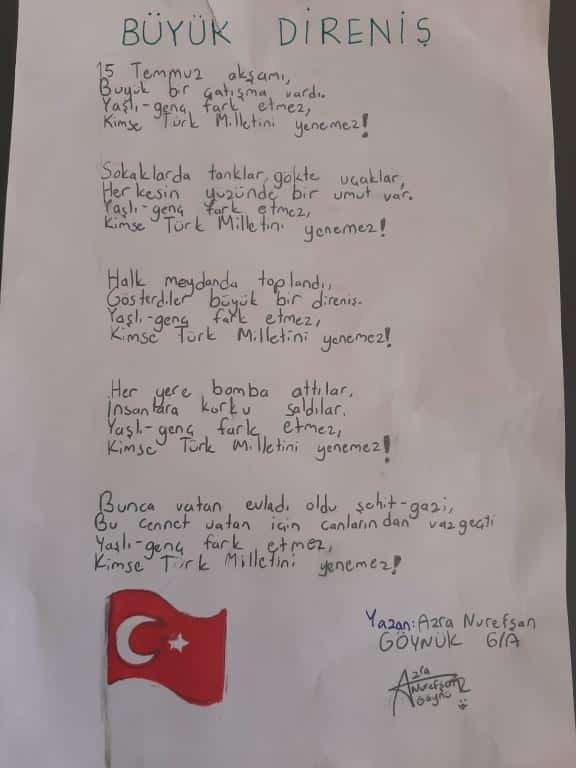 BÜYÜK DİRENİŞ
15 Temmuz akşamı,
Büyük bir çatışma vardı.
Yaşlı-genç fark etmez,
Kimse Türk Milletini yenemez!
Sokaklarda tanklar, gökte uçaklar,
Herkesin yüzünde bir umut var.
Yaşlı-genç fark etmez,
Kimse Türk Milletini yenemez!
Halk meydanda toplandı,
Gösterdiler büyük bir direniş.
Yaşlı-genç fark etmez,
Kimse Türk Milletini yenemez!
Her yere bomba attılar,
İnsanlara korku saldılar.
Yaşlı-genç fark etmez,
Kimse Türk Milletini yenemez!
Bunca vatan evladı oldu şehit-gazi,
Bu cennet vatan için canlarından vazgeçti
Yaşlı-genç fark etmez,
Kimse Türk Milletini yenemez!
Yazan: Azra Nurefşan
GÖYNÜK 6/A
Azra
Nurefşan
Göynük